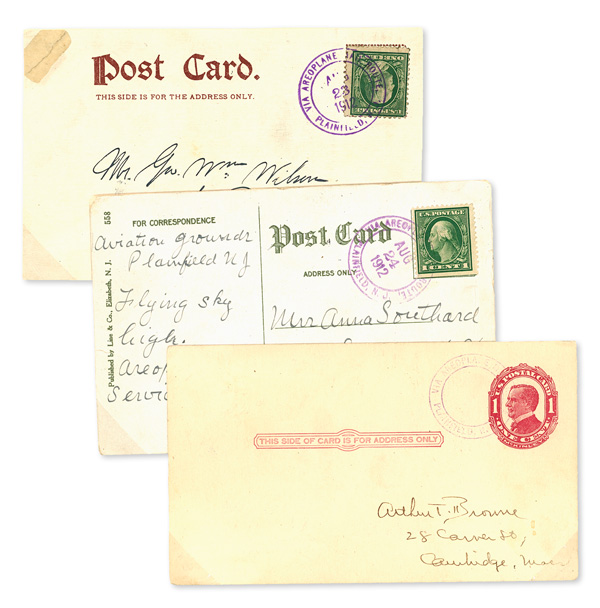 Post Card.
THIS SIDE IS FOR THE ADDRESS ONLY.
VIA AREOPLANE
AUG
23
1912
PLAINFIELD,
Mr. Geo. Wm. Wilson
558
Published by Line & Co., Elizabeth, N. J.
FOR CORRESPONDENCE
Aviation grounds
Plainfield NJ
Flying sky
high.
Areop
Servi
Post Card
ADDRESS ONLY
AUG
24
1912
PLAINFIELD, N. J.
ROUTE,
U.S. POSTAGE
1 CENT 1
Mrs Anna Southard
THIS SIDE OF CARD IS FOR ADDRESS ONLY
VIA AREOPL
PLAINFIELD,
U.S. POSTAL CARD
1 1
ONE CENT
Arthur T. Browne
28 Carver St,
Cambridge, Mass